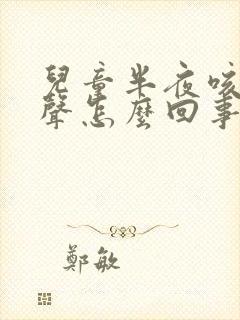 兒童半夜咳
聲怎麼回事
鄭敏